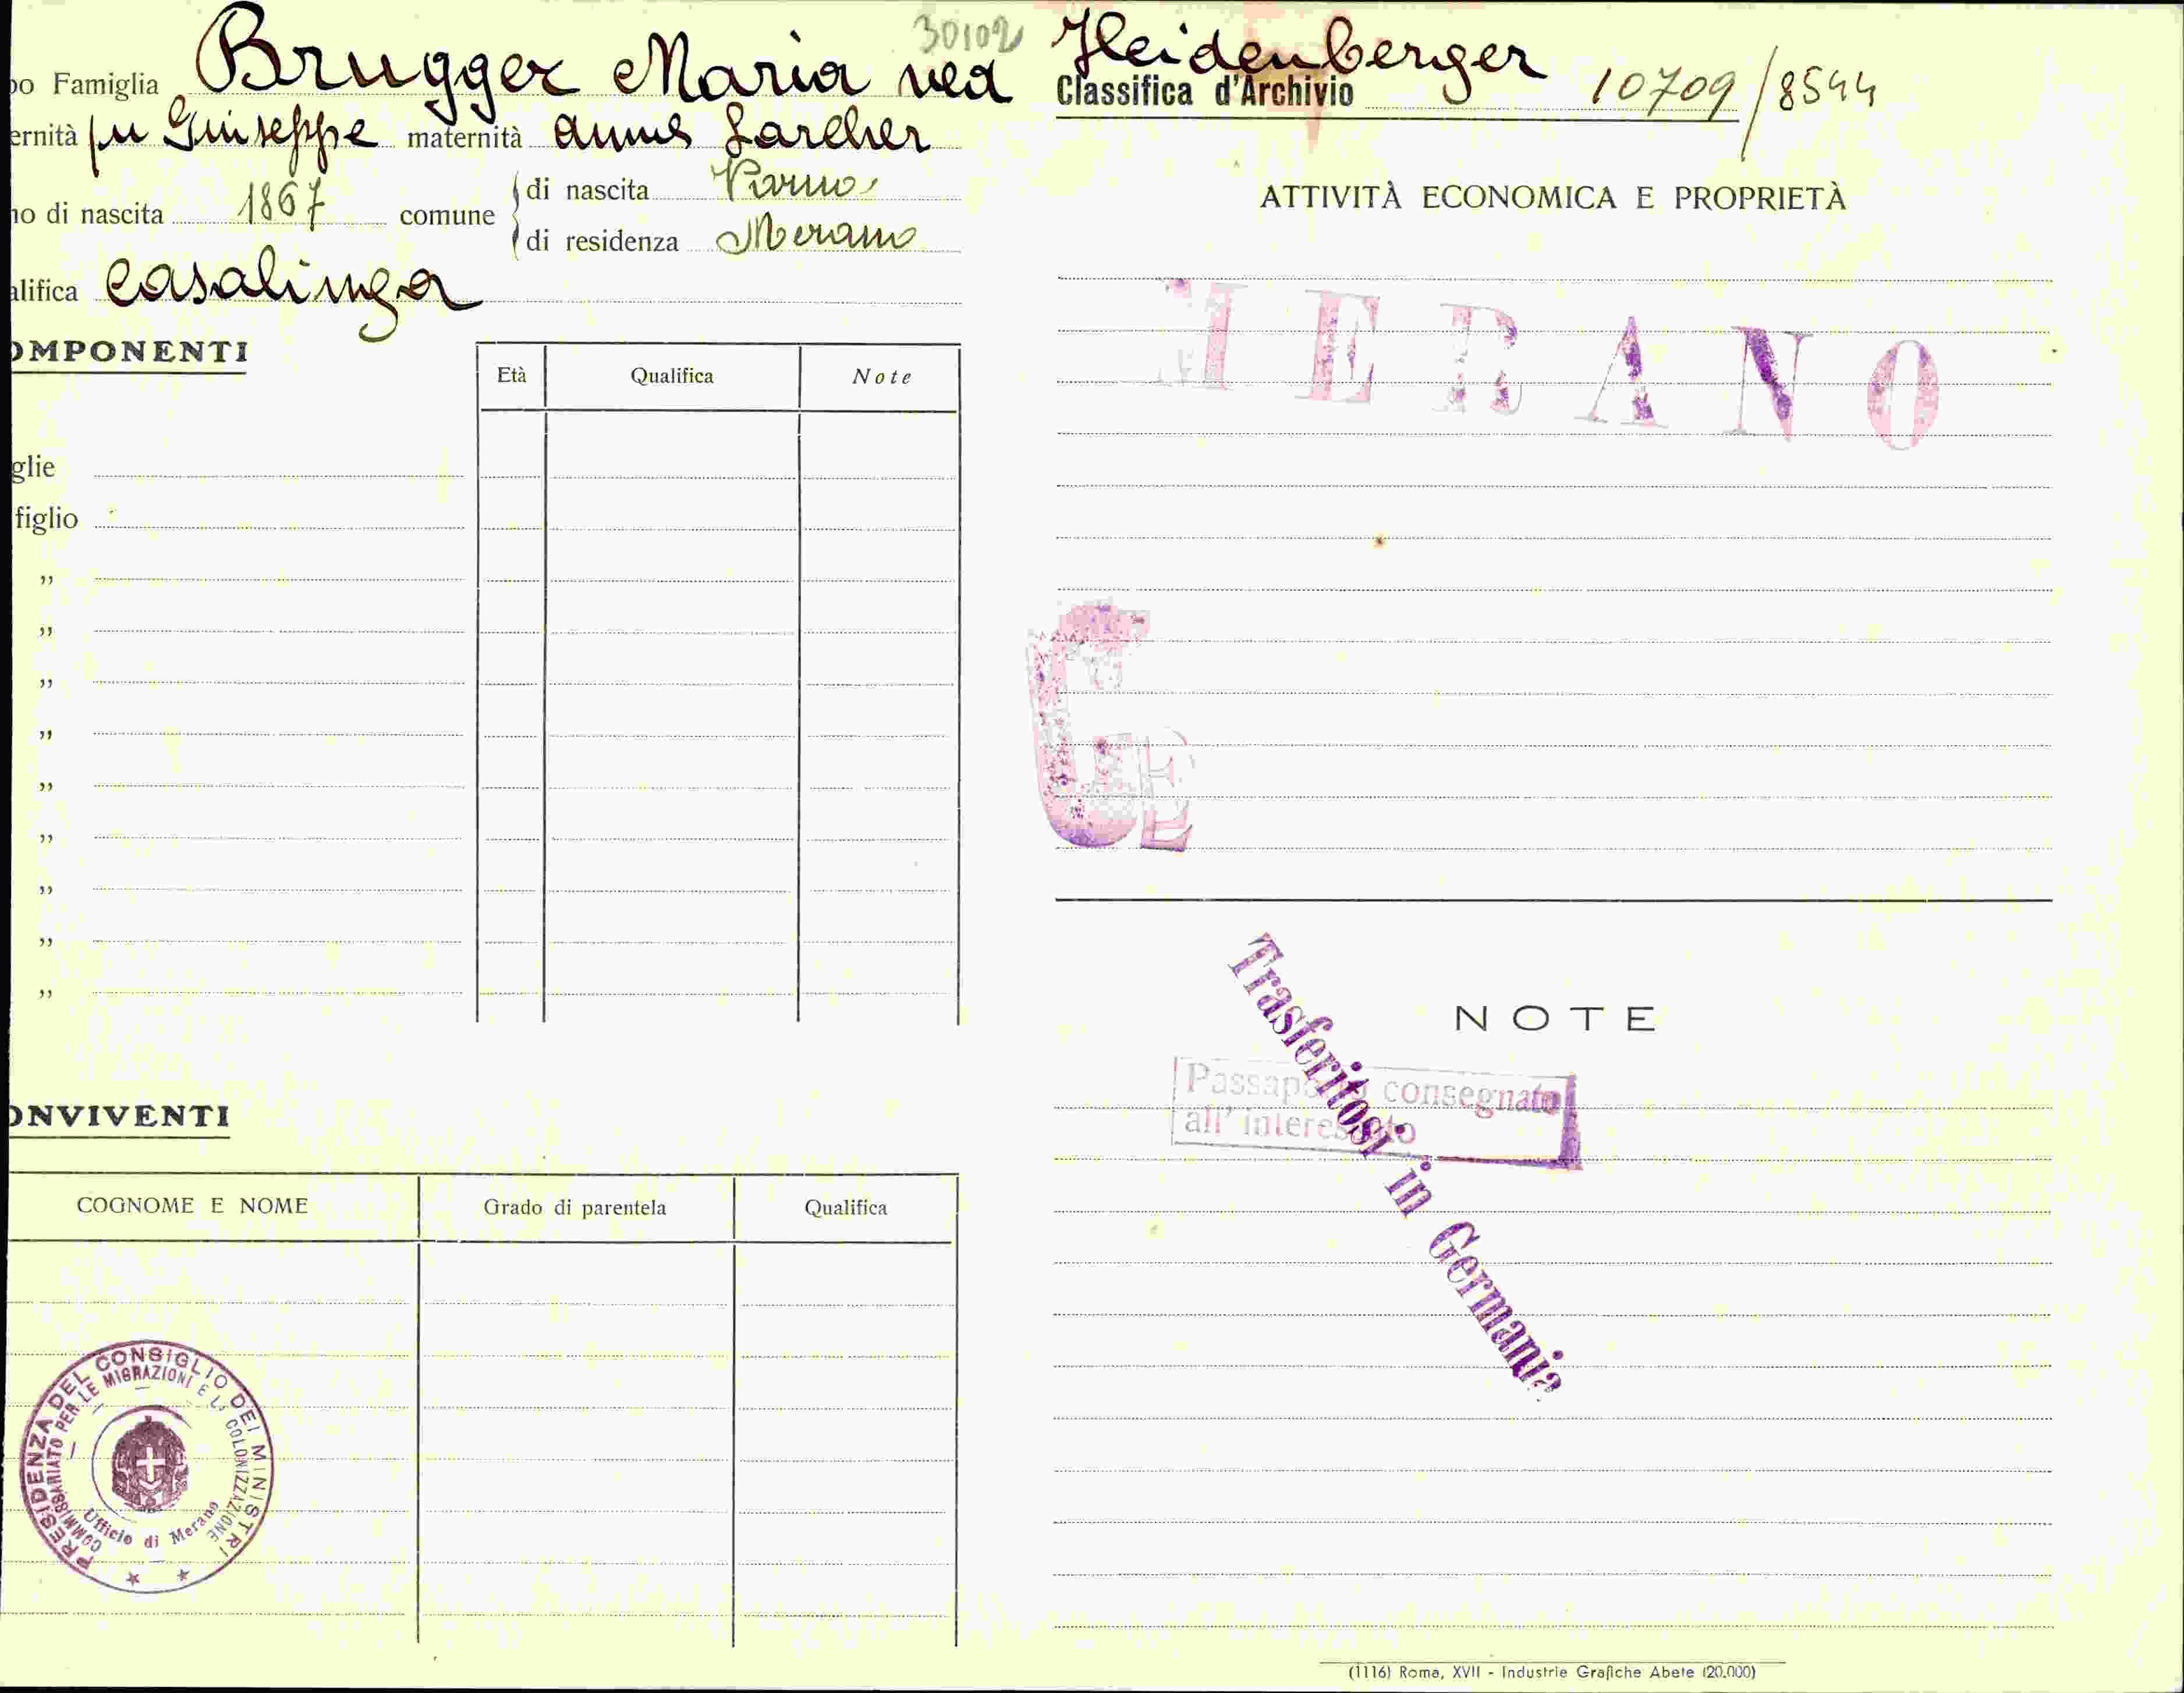 30102
po Famiglia Brugger Maria ved Heidenberger
Classifica d'Archivio 10709/8544
ernità fu Giuseppe maternità Anna Larcher
no di nascita 1867 comune di nascita
di residenza Merano
alifica casalinga
OMPONENTI
Età Qualifica Note
glie
figlio
"
"
"
"
"
"
"
"
"
ONVIVENTI
COGNOME E NOME Grado di parentela Qualifica
PRESIDENZA DEL CONSIGLIO DEI MINISTRI
COMMISSARIATO PER LE MIGRAZIONI E LA COLONIZZAZIONE
Ufficio di Merano
ATTIVITÀ ECONOMICA E PROPRIETÀ
MERANO
E
NOTE
Passaporto consegnato
all'interessato
Trasferitosi in Germania
(1116) Roma, XVII - Industrie Grafiche Abete (20.000)